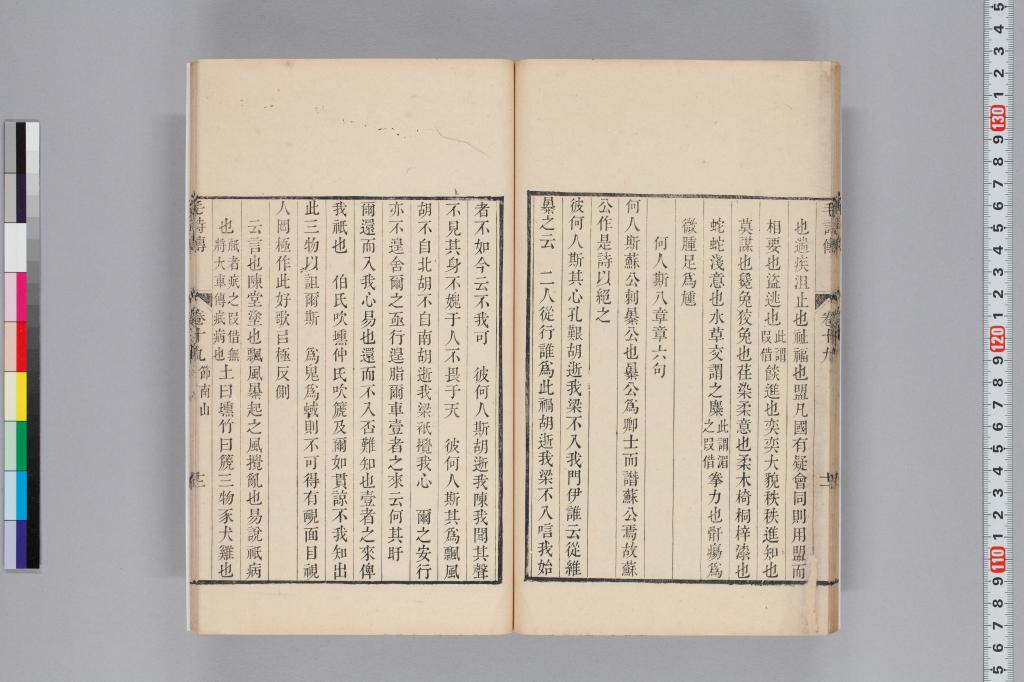 也遄疾沮止也祉福也盟凡國有疑會同則用盟而
相要也盜逃也此謂叚借餤進也奕奕大貌秩秩進知也
莫謀也毚兔狡兔也荏染柔意也柔木椅桐梓漆也
蛇蛇淺意也水草交謂之麋此謂湄之叚借拳力也骭瘍爲
微腫足爲尰
何人斯八章章六句
何人斯蘇公刺暴公也暴公爲卿士而譖蘇公焉故蘇
公作是詩以絕之
彼何人斯其心孔艱胡逝我梁不入我門伊誰云從維
暴之云　二人從行誰爲此禍胡逝我梁不入唁我始
毛詩傳
卷十九
者不如今云不我可　彼何人斯胡逝我陳我聞其聲
不見其身不媿于人不畏于天　彼何人斯其爲飄風
胡不自北胡不自南胡逝我梁祇攪我心　爾之安行
亦不遑舍爾之亟行遑脂爾車壹者之來云何其盱
爾還而入我心易也還而不入否難知也壹者之來俾
我祇也　伯氏吹壎仲氏吹篪及爾如貫諒不我知出
此三物以詛爾斯　爲鬼爲蜮則不可得有靦面目視
人罔極作此好歌㠯極反側
云言也陳堂塗也飄風暴起之風攪亂也易說祇病
也祇者疧之叚借無將大車傳疧病也土曰壎竹曰篪三物豕犬雞也
毛詩傳
卷十九
節南山